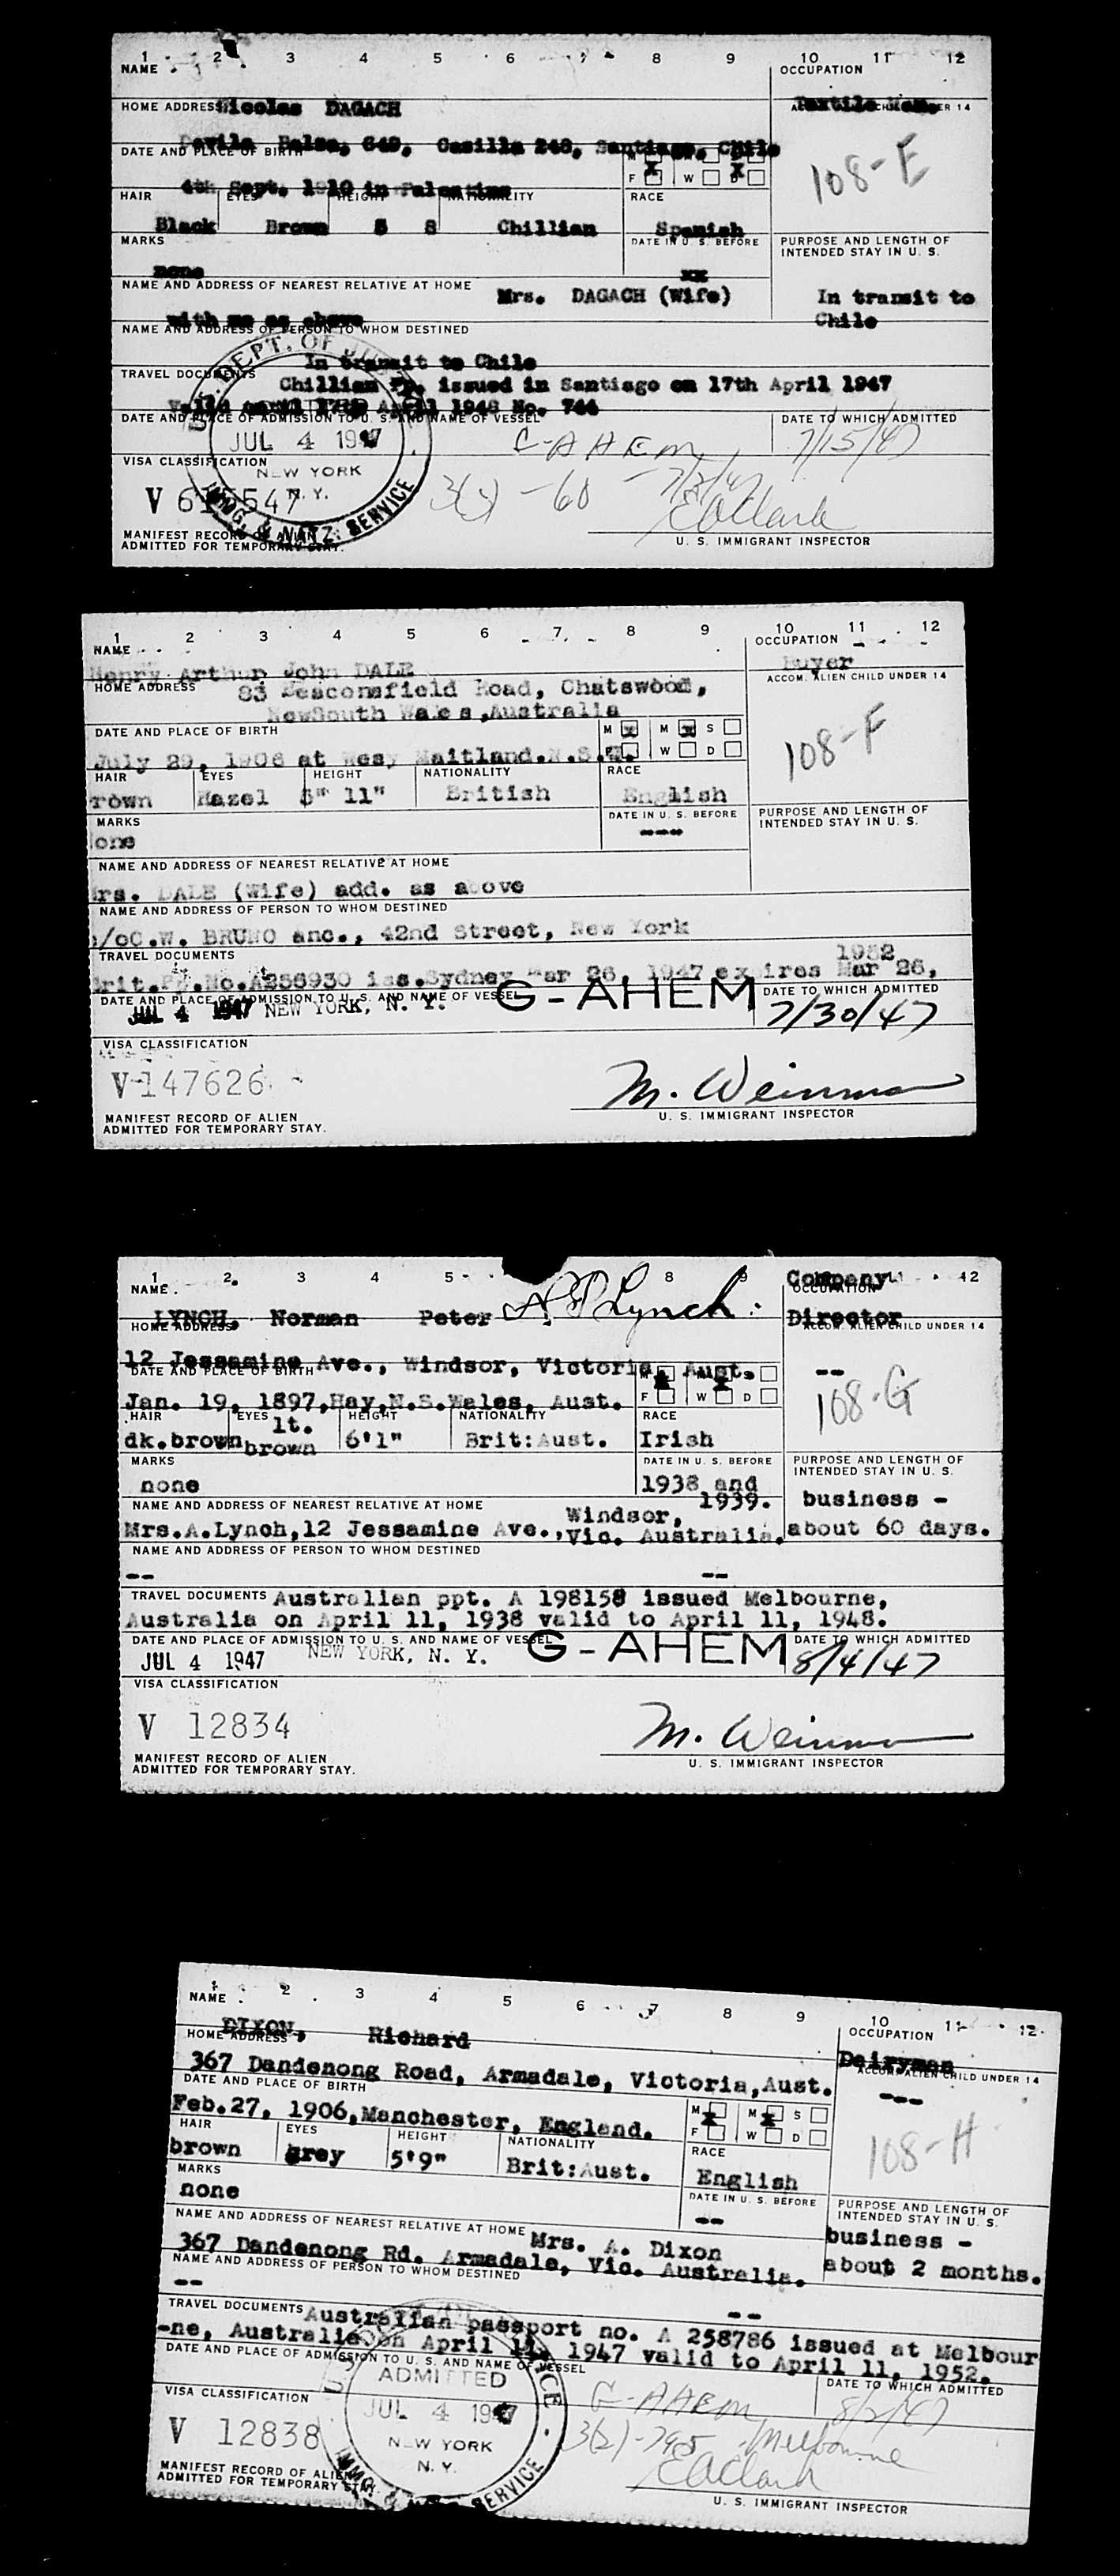 1 2 3 4 5 6 7 8 9 10 11 12
NAME
OCCUPATION
Nicolas DAGACH
Textile Man.
HOME ADDRESS
Davila Balsa, 649, Casilla 248, Santiago, Chile
108-E
DATE AND PLACE OF BIRTH
4th Sept. 1910 in Palestine
X X
F W D
HAIR EYES HEIGHT NATIONALITY RACE
Black Brown 5 8 Chillian Spanish
MARKS
DATE IN U. S. BEFORE
PURPOSE AND LENGTH OF
INTENDED STAY IN U. S.
none
xx
NAME AND ADDRESS OF NEAREST RELATIVE AT HOME
Mrs. DAGACH (Wife)
In transit to
Chile
with me as above
NAME AND ADDRESS OF PERSON TO WHOM DESTINED
In transit to Chile
TRAVEL DOCUMENTS
Chillian Pp. issued in Santiago on 17th April 1947
valid until 17th April 1948 No. 744
DATE AND PLACE OF ADMISSION TO U. S. AND NAME OF VESSEL
DATE TO WHICH ADMITTED
U. S. DEPT. OF
ADMITTED
JUL 4 1947
NEW YORK
N. Y.
IMMIG. & NATZ. SERVICE
G-AHEM
7/15/47
VISA CLASSIFICATION
V 615547
3(3) - 60 - 7/3/47
E A Clark
MANIFEST RECORD OF ALIEN
ADMITTED FOR TEMPORARY STAY.
U. S. IMMIGRANT INSPECTOR
1 2 3 4 5 6 7 8 9 10 11 12
NAME
OCCUPATION
Henry Arthur John DALE
Buyer
HOME ADDRESS
ACCOM. ALIEN CHILD UNDER 14
83 Beaconsfield Road, Chatswood,
NewSouth Wales,Australia
108-F
DATE AND PLACE OF BIRTH
M x M x S
F W D
July 29, 1908 at Wesy Maitland.N.S.W.
HAIR EYES HEIGHT NATIONALITY RACE
rown Hazel 5" 11" British English
MARKS
DATE IN U. S. BEFORE
PURPOSE AND LENGTH OF
INTENDED STAY IN U. S.
one
----
NAME AND ADDRESS OF NEAREST RELATIVE AT HOME
rs. DALE (Wife) add. as above
NAME AND ADDRESS OF PERSON TO WHOM DESTINED
/oC.W. BRUNO anc., 42nd Street, New York
TRAVEL DOCUMENTS
1952
rit.Pp.No.A256930 iss.Sydney Mar 26, 1947 expires Mar 26,
DATE AND PLACE OF ADMISSION TO U. S. AND NAME OF VESSEL
DATE TO WHICH ADMITTED
JUL 4 1947 NEW YORK, N. Y. G-AHEM
7/30/47
VISA CLASSIFICATION
V-147626
M. Weinman
MANIFEST RECORD OF ALIEN
ADMITTED FOR TEMPORARY STAY.
U. S. IMMIGRANT INSPECTOR
1 2 3 4 5 8 9 12
NAME
OCCUPATION
Company
Director
LYNCH, Norman Peter N P Lynch.
HOME ADDRESS
ACCOM. ALIEN CHILD UNDER 14
12 Jessamine Ave., Windsor, Victoria, Aust.
--
108-G
DATE AND PLACE OF BIRTH
X X
F W D
Jan. 19, 1897,Hay,N.S.Wales, Aust.
HAIR EYES HEIGHT NATIONALITY RACE
dk.brown lt. brown 6'1" Brit:Aust. Irish
MARKS
DATE IN U. S. BEFORE
PURPOSE AND LENGTH OF
INTENDED STAY IN U. S.
none
1938 and
1939.
business -
about 60 days.
NAME AND ADDRESS OF NEAREST RELATIVE AT HOME
Mrs.A.Lynch,12 Jessamine Ave., Windsor, Vic. Australia.
NAME AND ADDRESS OF PERSON TO WHOM DESTINED
-- --
TRAVEL DOCUMENTS Australian ppt. A 198158 issued Melbourne,
Australia on April 11, 1938 valid to April 11, 1948.
DATE AND PLACE OF ADMISSION TO U. S. AND NAME OF VESSEL
DATE TO WHICH ADMITTED
JUL 4 1947 NEW YORK, N. Y. G-AHEM
8/4/47
VISA CLASSIFICATION
V 12834
M. Weinman
MANIFEST RECORD OF ALIEN
ADMITTED FOR TEMPORARY STAY.
U. S. IMMIGRANT INSPECTOR
1 2 3 4 5 6 7 8 9 10 11 12
NAME
OCCUPATION
DIXON, Richard
Dairyman
HOME ADDRESS
ACCOM. ALIEN CHILD UNDER 14
367 Dandenong Road, Armadale, Victoria,Aust.
---
108-H
DATE AND PLACE OF BIRTH
M X M X S
F W D
Feb.27, 1906,Manchester, England.
HAIR EYES HEIGHT NATIONALITY RACE
brown grey 5'9" Brit:Aust. English
MARKS
DATE IN U. S. BEFORE
PURPOSE AND LENGTH OF
INTENDED STAY IN U. S.
none
--
business -
about 2 months.
NAME AND ADDRESS OF NEAREST RELATIVE AT HOME Mrs. A. Dixon
367 Dandenong Rd. Armadale, Vic. Australia.
NAME AND ADDRESS OF PERSON TO WHOM DESTINED
-- --
TRAVEL DOCUMENTS Australian passport no. A 258786 issued at Melbour
-ne, Australia on April 11, 1947 valid to April 11, 1952.
DATE AND PLACE OF ADMISSION TO U. S. AND NAME OF VESSEL
DATE TO WHICH ADMITTED
ADMITTED
JUL 4 1947
NEW YORK
N. Y.
IMMIG. SERVICE
G-AHEM
8/2/47
VISA CLASSIFICATION
V 12838
3(2)-795 Melbourne
E A Clark
MANIFEST RECORD OF ALIEN
ADMITTED FOR TEMPORARY STAY.
U. S. IMMIGRANT INSPECTOR